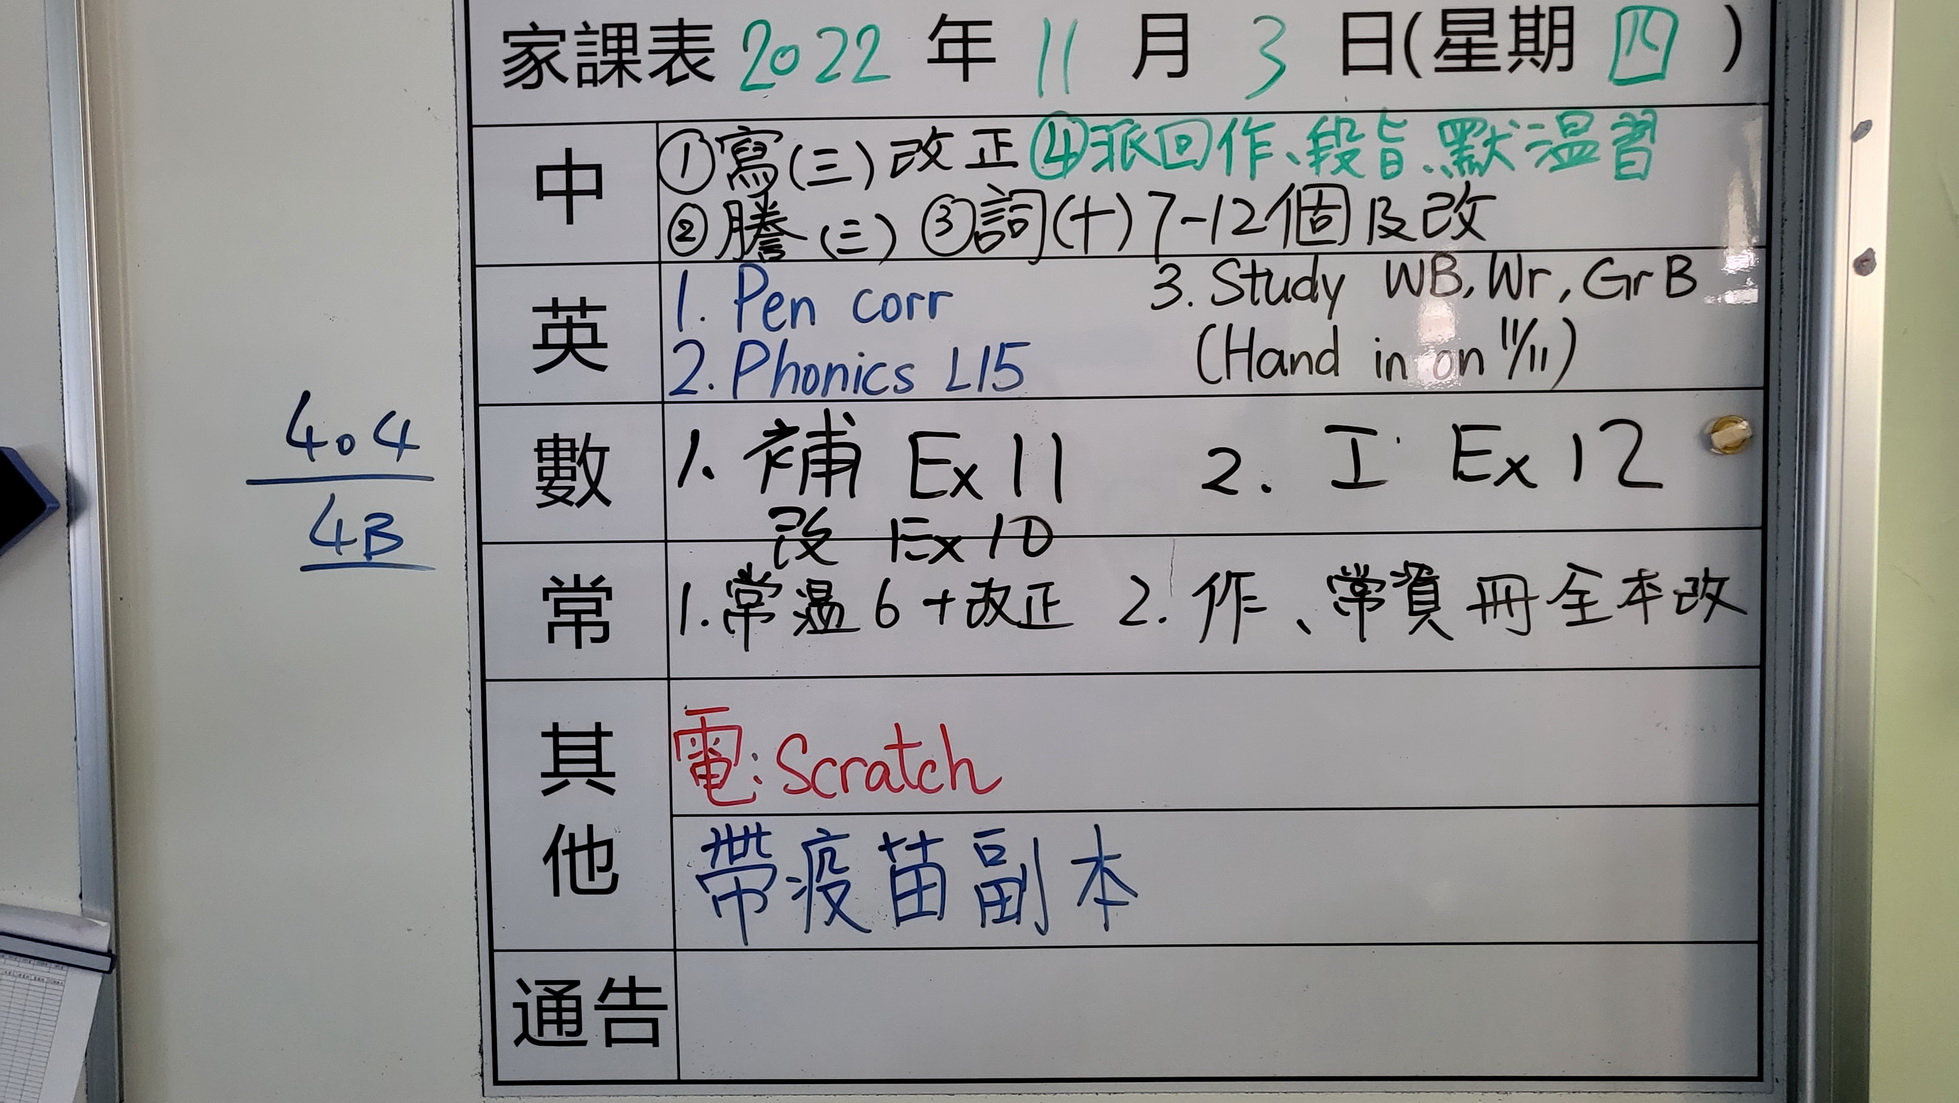 家課表 2022 年 11 月 3 日(星期 四 )
中
①寫(三)改正 ④派回作、段旨、默溫習
②謄(三) ③詞(十)7-12個及改
英
1. Pen corr
2. Phonics L15
3. Study WB, Wr, GrB
(Hand in on 11/11)
數
1. 補 Ex 11 2. 工 Ex 12
改 Ex 10
常
1. 常溫 6 + 改正 2. 作、常資冊全本改
其他
電: Scratch
帶疫苗副本
通告
404
4B